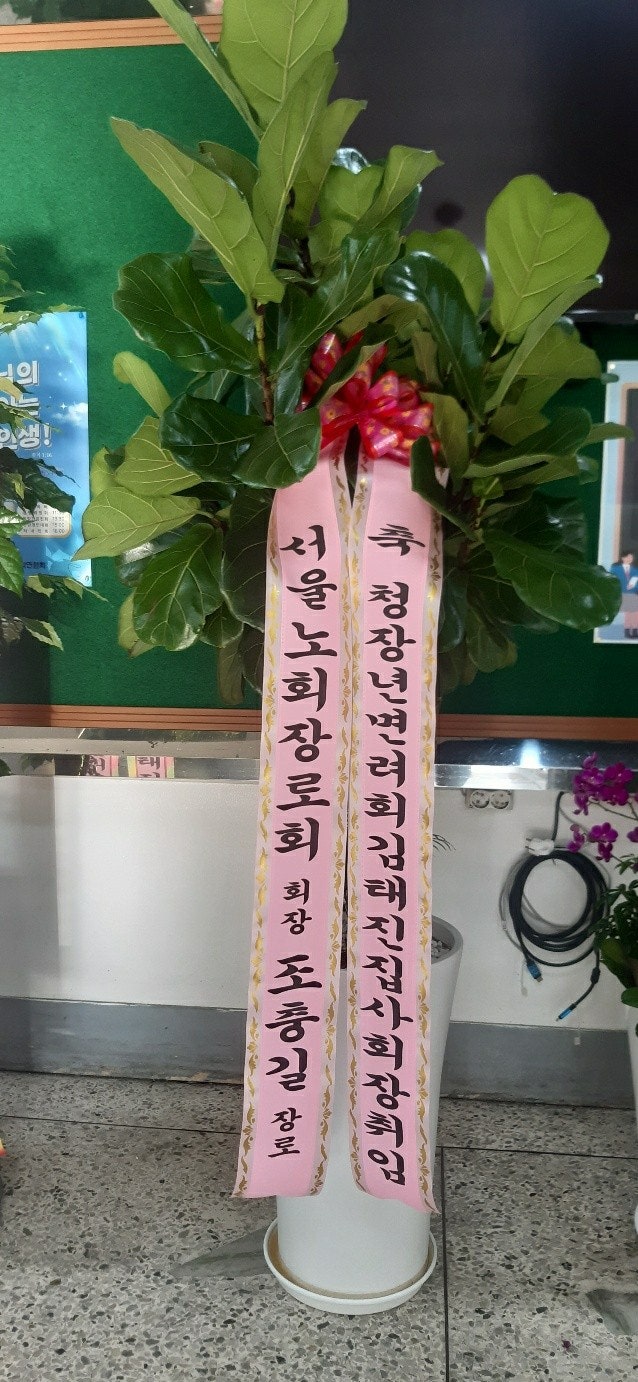 축 청장년면려회김태진집사회장취임
서울노회장로회 회장 조충길 장로
생!